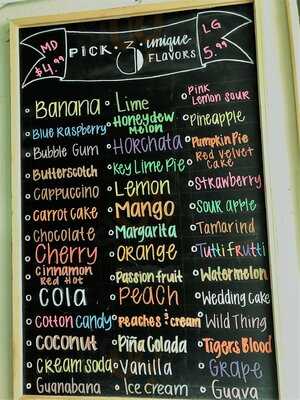 MD $4.99
PICK · 3 · unique FLAVORS
LG 5.99
Banana
Blue Raspberry
Bubble Gum
Butterscotch
Cappuccino
Carrot cake
Chocolate
Cherry
Cinnamon
Red Hot
Cola
Cotton candy
Coconut
Cream soda
Guanabana
Lime
Honeydew
Melon
Horchata
Key Lime Pie
Lemon
Mango
Margarita
Orange
Passion fruit
Peach
Peaches & cream
Piña Colada
Vanilla
Ice Cream
Pink
Lemon sour
Pineapple
Pumpkin Pie
Red Velvet
Cake
Strawberry
Sour apple
Tamarind
Tutti Frutti
Watermelon
Wedding Cake
Wild Thing
Tigers Blood
Grape
Guava